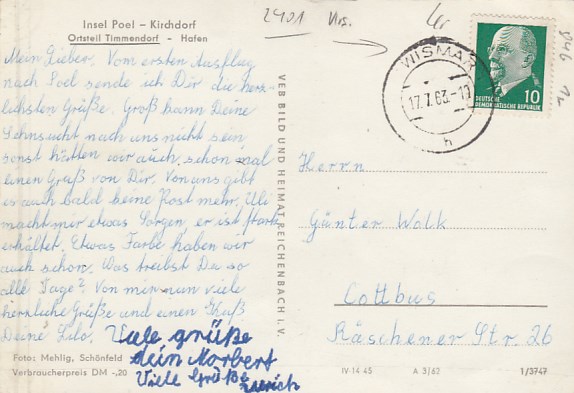 Insel Poel – Kirchdorf
Ortsteil Timmendorf - Hafen
Mein Lieber. Vom ersten Ausflug
nach Poel sende ich Dir die herz-
lichsten Grüße. Groß kann Deine
Sehnsucht nach uns nicht sein
sonst hätten wir auch schon mal
einen Gruß von Dir. Von uns gibt
es auch bald keine Post mehr. Uli
macht mir etwas Sorgen, er ist stark
erkältet. Etwas Farbe haben wir
auch schon. Was treibst Du so
alle Tage? Von mir nun viele
herzliche Grüße und einen Kuß
Deine Lilo.
Viele grüße
dein Norbert
Viele Grüße
Foto: Mehlig, Schönfeld
Verbraucherpreis DM -,20
VEB BILD UND HEIMAT REICHENBACH I. V.
2401
WISMAR
17.7.63-11
h
DEUTSCHE
DEMOKRATISCHE REPUBLIK
10
Herrn
Günter Wolk
Cottbus
Räschener Str. 26
IV-14-45
A 3/62
1/3747